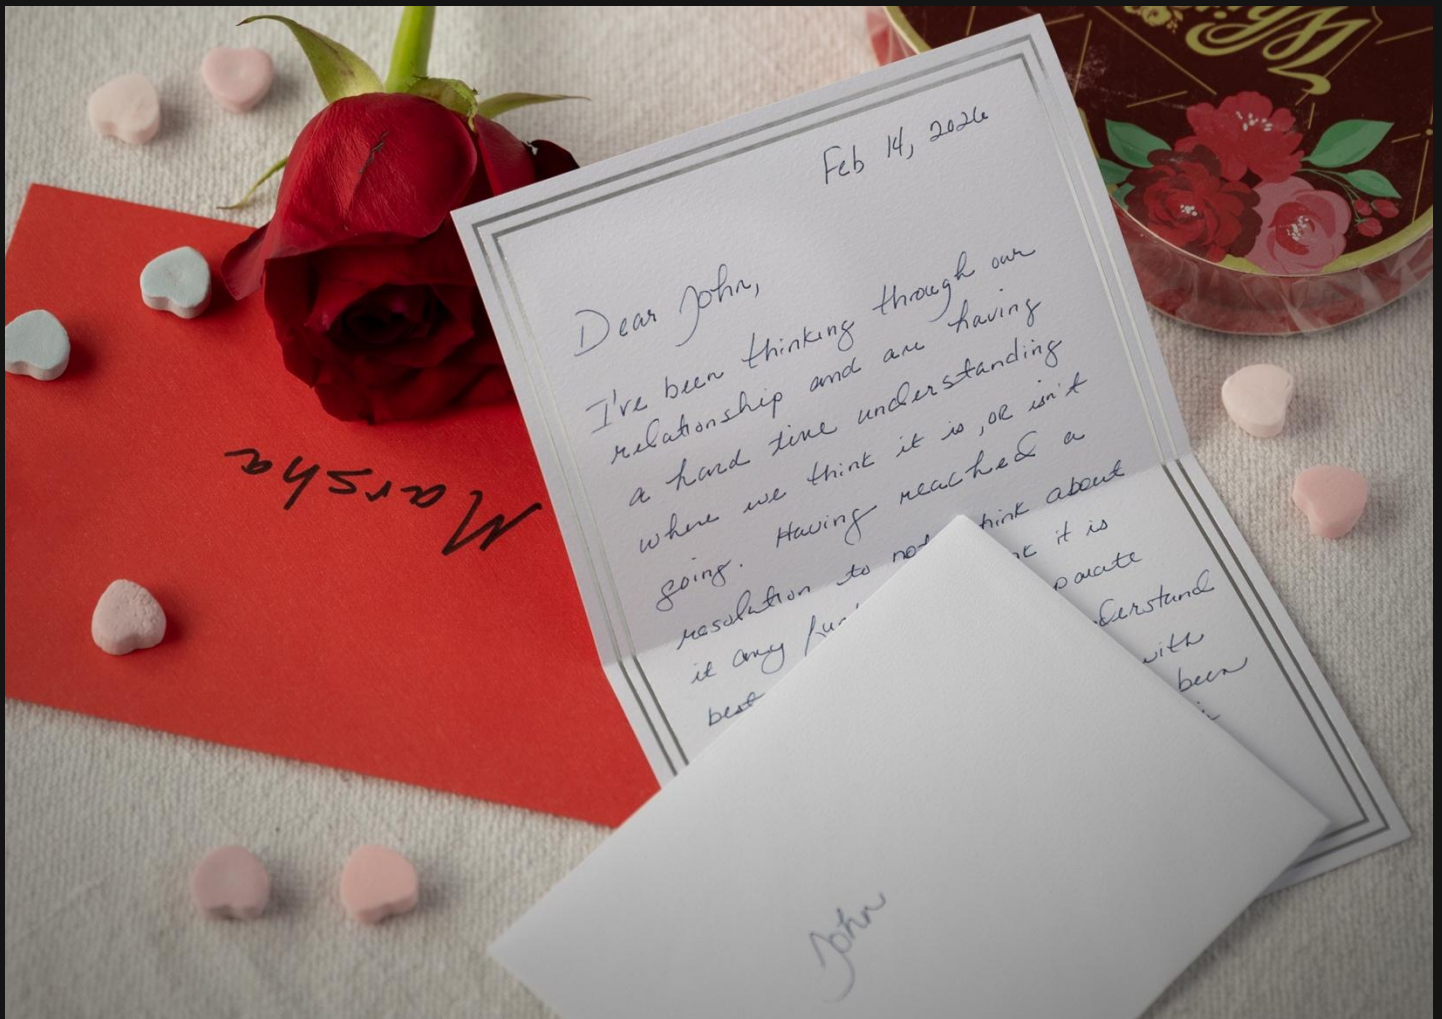 Feb 14, 2026
Dear John,
I've been thinking through our
relationship and are having
a hard time understanding
where we think it is, or isn't
going. Having reached a
resolution to not think about
it any it is
best
with
been
Marsha
John